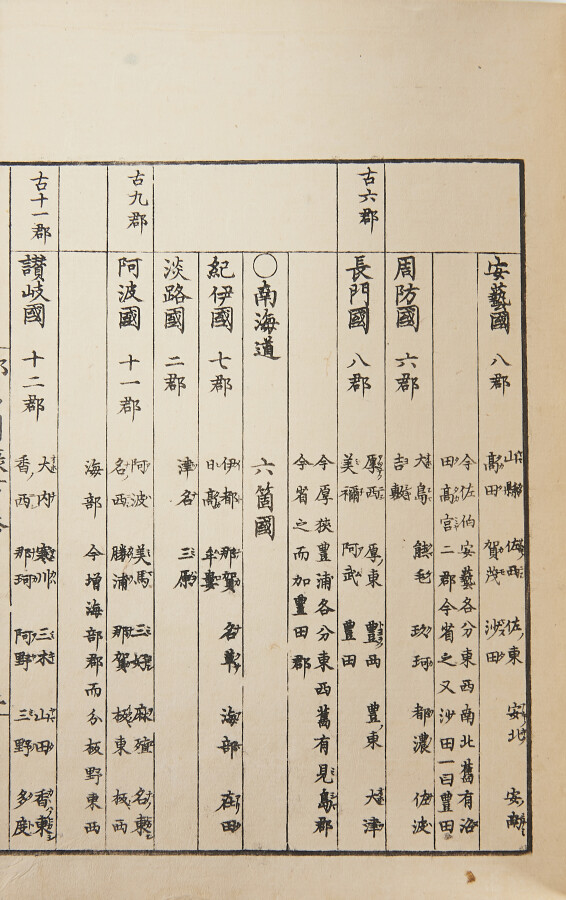 安藝國 八郡
山縣 佐西 佐東 安北 安南
高田 賀茂 沙田
今佐伯安藝各分東西南北舊有沼
田高宮二郡今省之又沙田一曰豊田
周防國 六郡
大島 熊毛 玖珂 都濃 佐波
吉敷
古六郡
長門國 八郡
厚西 厚東 豊西 豊東 大津
美禰 阿武 豊田
今厚狹豊浦各分東西舊有見島郡
今省之而加豊田郡
〇南海道 六箇國
紀伊國 七郡
伊都 那賀 名草 海部 在田
日高 牟婁
淡路國 二郡
津名 三原
古九郡
阿波國 十一郡
阿波 美馬 三好 麻殖 名東
名西 勝浦 那賀 板東 板西
海部 今增海部郡而分板野東西
古十一郡
讃岐國 十二郡
大内 寒川 三木 山田 香東
香西 那珂 阿野 三野 多度